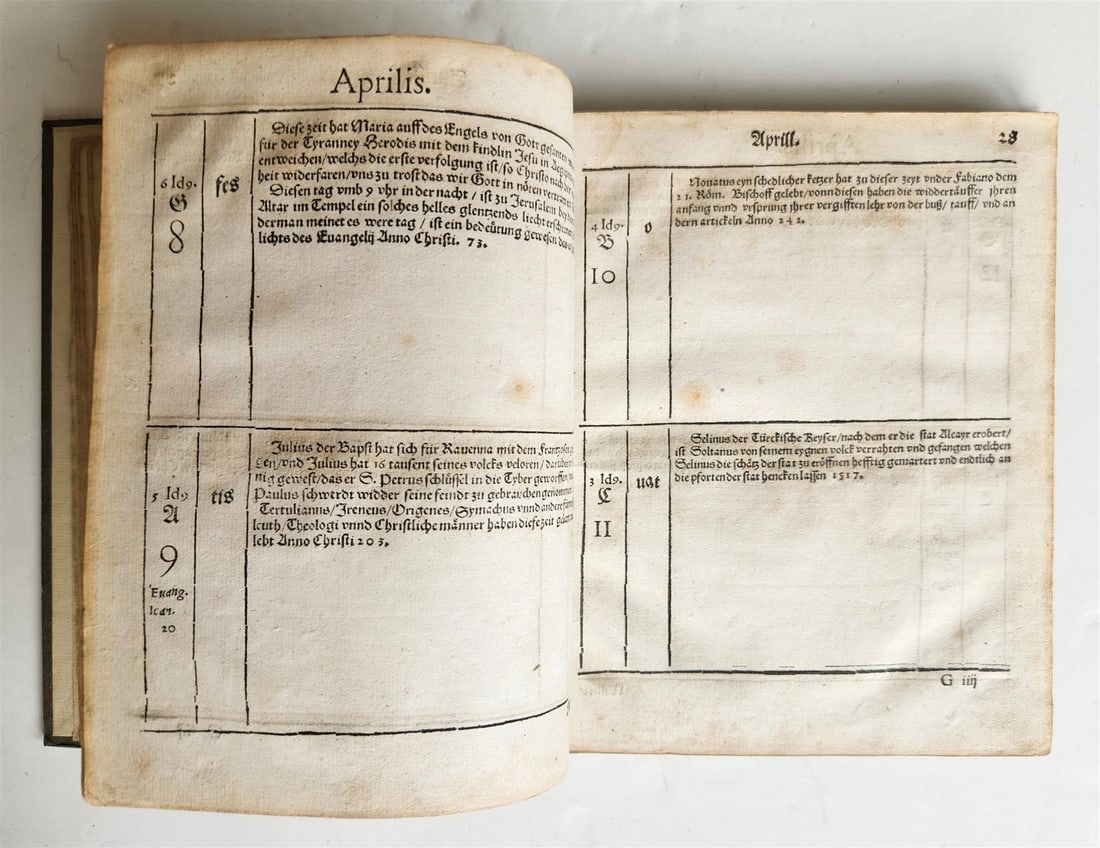 Aprilis.
6 Idꝰ.
G
8
fes
Diese zeit hat Maria auff des Engels von Gott gesanten
für der Tyranney Herodis mit dem kindlin Jesu in
entweichen/welchs die erste verfolgung ist/so Christo nach der
heit widerfaren/vns zu trost das wir Gott in nören vertrawen
Diesen tag vmb 9 vhr in der nacht / ist zu Jerusalem bey dem
Altar im Tempel ein solches helles glentzends liecht erschienen
derman meinet es were tag / ist ein bedeütung gewesen des
lichts des Euangelij Anno Christi. 73.
5 Idꝰ
A
9
Euang.
lear.
20
tis
Julius der Bapst hat sich für Rauenna mit dem Frantzosen
/vnd Julius hat 16 tausent seines volcks veloren/
nig gewest/das er S. Petrus schlüssel in die Tyber geworffen
Paulus schwerdt widder seine feindt zu gebrauchen genommen
Tertulianus/Jreneus/Origenes/Symachus vnnd andere
leuth/Theologi vnnd Christliche männer haben diese zeit
lebt Anno Christi 203.
Aprill.
28
4 Idꝰ.
B
10
o
Nonatus eyn schedlicher ketzer hat zu dieser zeyt vnder Fabiano dem
21. Röm. Bischoff gelebt/vonn diesen haben die widderteuffer jhren
anfang vnnd vrsprung jhrer vergifften lehr von der buß/ tauff/ vnd an
dern artickeln Anno 242.
3 Idꝰ.
C
11
uat
Selinus der Türckische Keyser/nach dem er die stat Alcayr erobert/
ist Soltanus von seinem eygnen volck verrahten vnd gefangen welchen
Selinus die schätz der stat zu eröffnen hefftig gemartert vnd endtlich an
die pforten der stat hencken lassen 1517.
G iiij